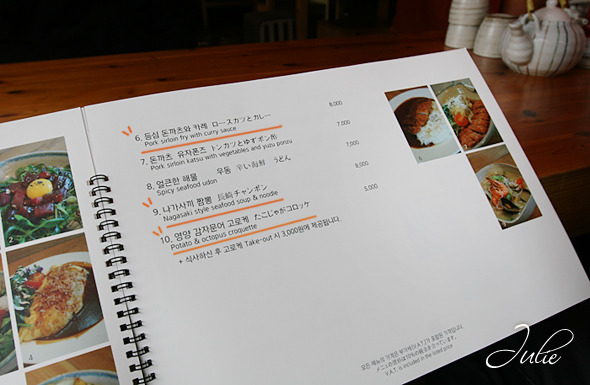 6. 등심 돈까츠와 카레 ロースカツとカレー 8,000
Pork sirloin fry with curry sauce
7. 돈까츠 유자폰즈 トンカツとゆずポン酢 7,000
Pork sirloin katsu with vegetables and yuzu ponzu
8. 얼큰한 해물 우동 辛い海鮮 うどん 7,000
Spicy seafood udon
9. 나가사끼 짬뽕 長崎チャンポン 8,000
Nagasaki style seafood soup & noodle
10. 영양 감자문어 고로케 たこじゃがコロッケ 5,000
Potato & octopus croquette
+ 식사하신 후 고로케 Take-out 시 3,000원에 제공됩니다.
2
4
6
모든 메뉴의 가격은 부가세(V.A.T.)가 포함된 가격입니다.
V.A.T. is included in the listed price
Julie